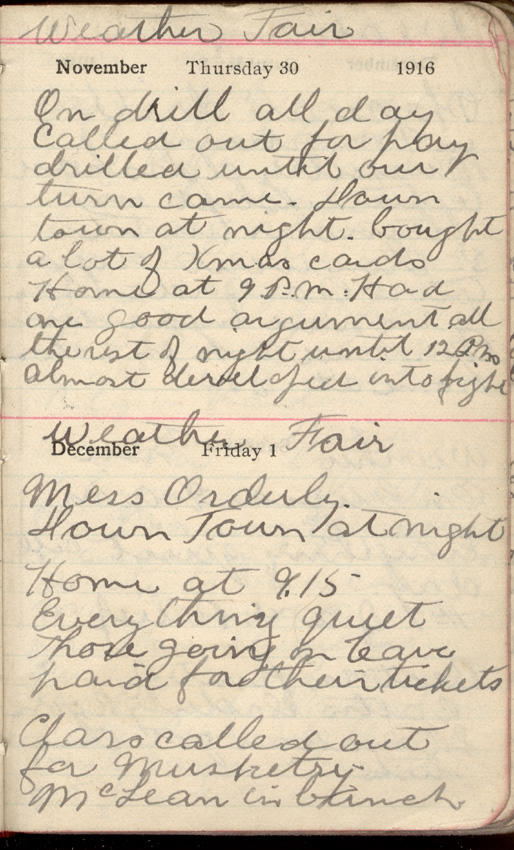 Weather Fair
November Thursday 30 1916
On drill all day
Called out for pay
drilled until our
turn came. Down
town at night. bought
a lot of Xmas cards
Home at 9 P.M. Had
one good argument all
the rest of night until 12 P.M
almost developed into fight
Weather Fair
December Friday 1
Mess Orderly.
Down Town at night
Home at 9.15
Everything quiet
Those going on leave
paid for their tickets
Class called out
for Musketry
McLean in